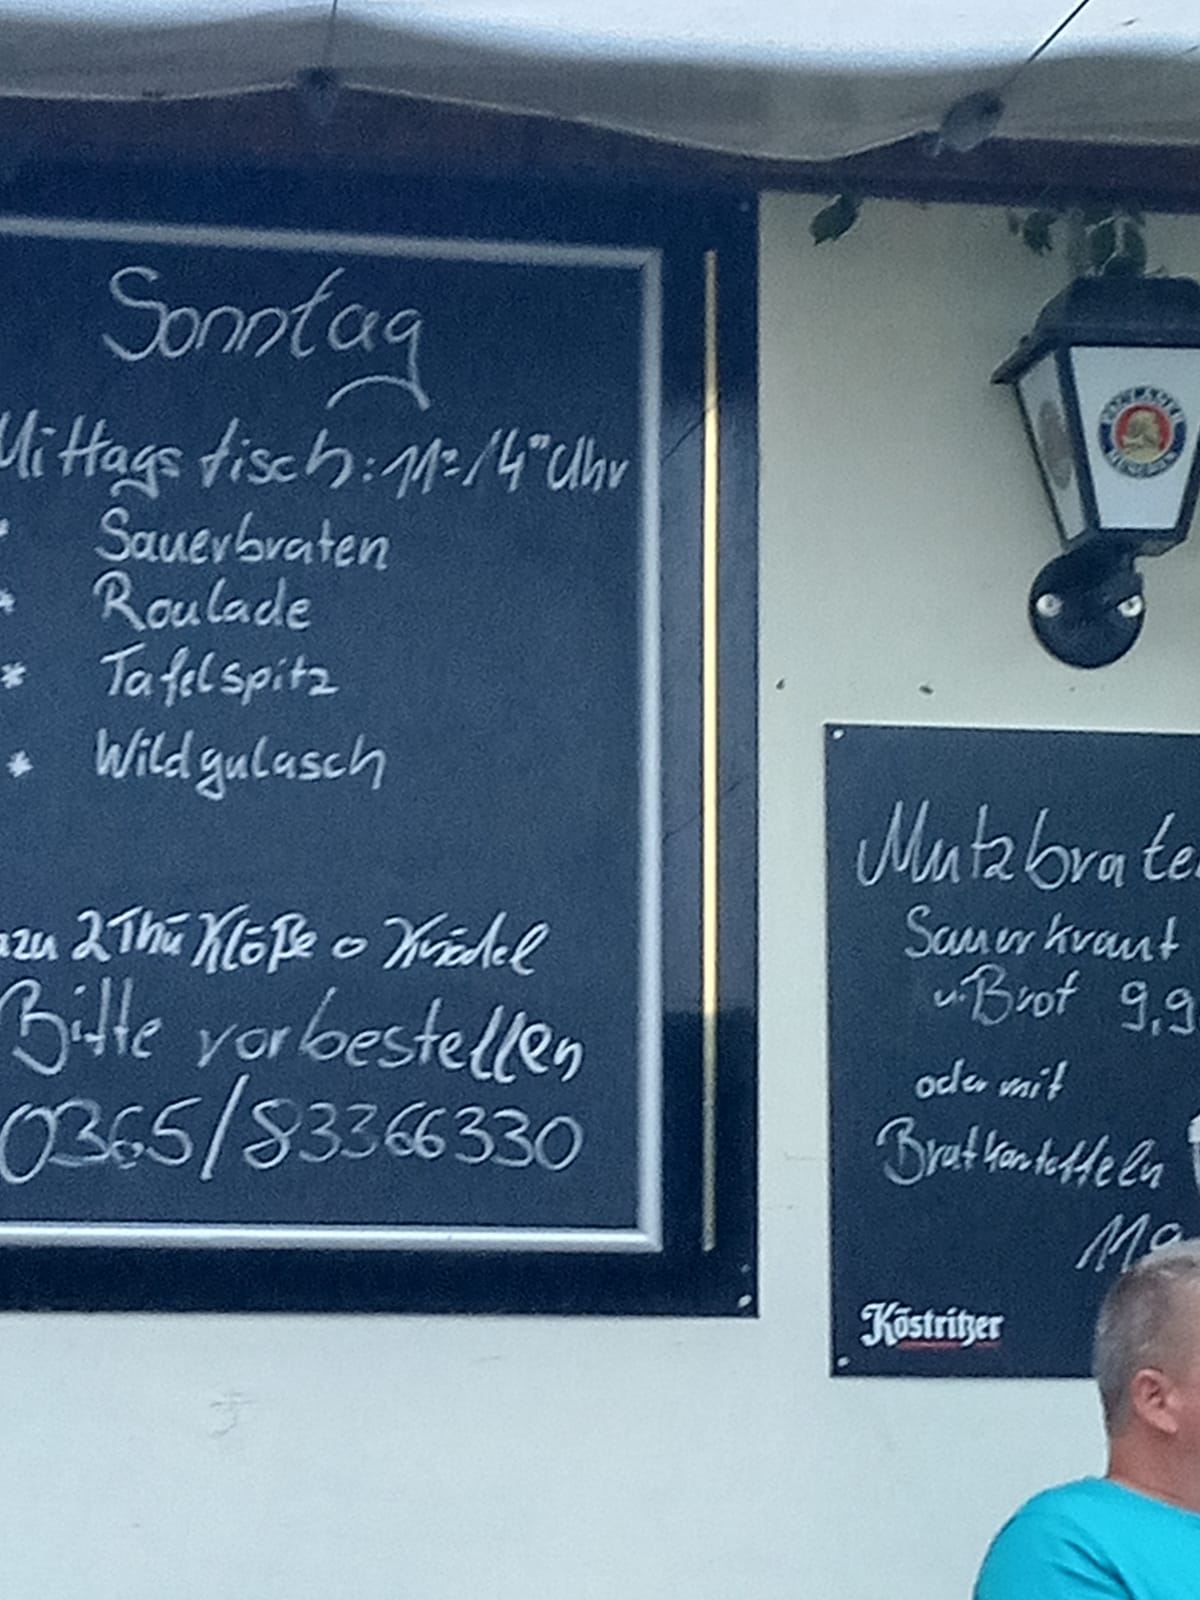 Sonntag
Mittagstisch: 11³⁰/14⁰⁰ Uhr
* Sauerbraten
* Roulade
* Tafelspitz
* Wildgulasch
azu 2 Thü Klöße o Knödel
Bitte vorbestellen
0365/83366330
Mutzbrate
Sauerkraut
u. Brot 9,9
oder mit
Bratkartoffeln
119
Köstritzer